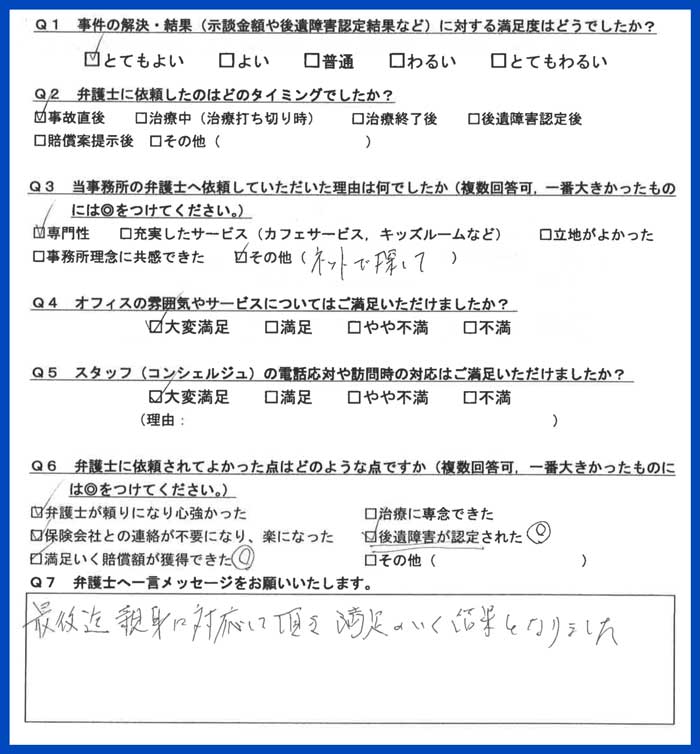 Q1 事件の解決・結果(示談金額や後遺障害認定結果など)に対する満足度はどうでしたか?
☑とてもよい □よい □普通 □わるい □とてもわるい
Q2 弁護士に依頼したのはどのタイミングでしたか?
☑事故直後 □治療中(治療打ち切り時) □治療終了後 □後遺障害認定後
□賠償案提示後 □その他( )
Q3 当事務所の弁護士へ依頼していただいた理由は何でしたか(複数回答可,一番大きかったもの
には◎をつけてください。)
☑専門性 □充実したサービス(カフェサービス,キッズルームなど) □立地がよかった
□事務所理念に共感できた ☑その他(ネットで探して )
Q4 オフィスの雰囲気やサービスについてはご満足いただけましたか?
☑大変満足 □満足 □やや不満 □不満
Q5 スタッフ(コンシェルジュ)の電話応対や訪問時の対応はご満足いただけましたか?
☑大変満足 □満足 □やや不満 □不満
(理由: )
Q6 弁護士に依頼されてよかった点はどのような点ですか(複数回答可,一番大きかったものに
は◎をつけてください。)
☑弁護士が頼りになり心強かった □治療に専念できた
☑保険会社との連絡が不要になり、楽になった ☑後遺障害が認定された ◎
☑満足いく賠償額が獲得できた ◎ □その他( )
Q7 弁護士へ一言メッセージをお願いいたします。
最後迄親身に対応して頂き満足のいく結果となりました